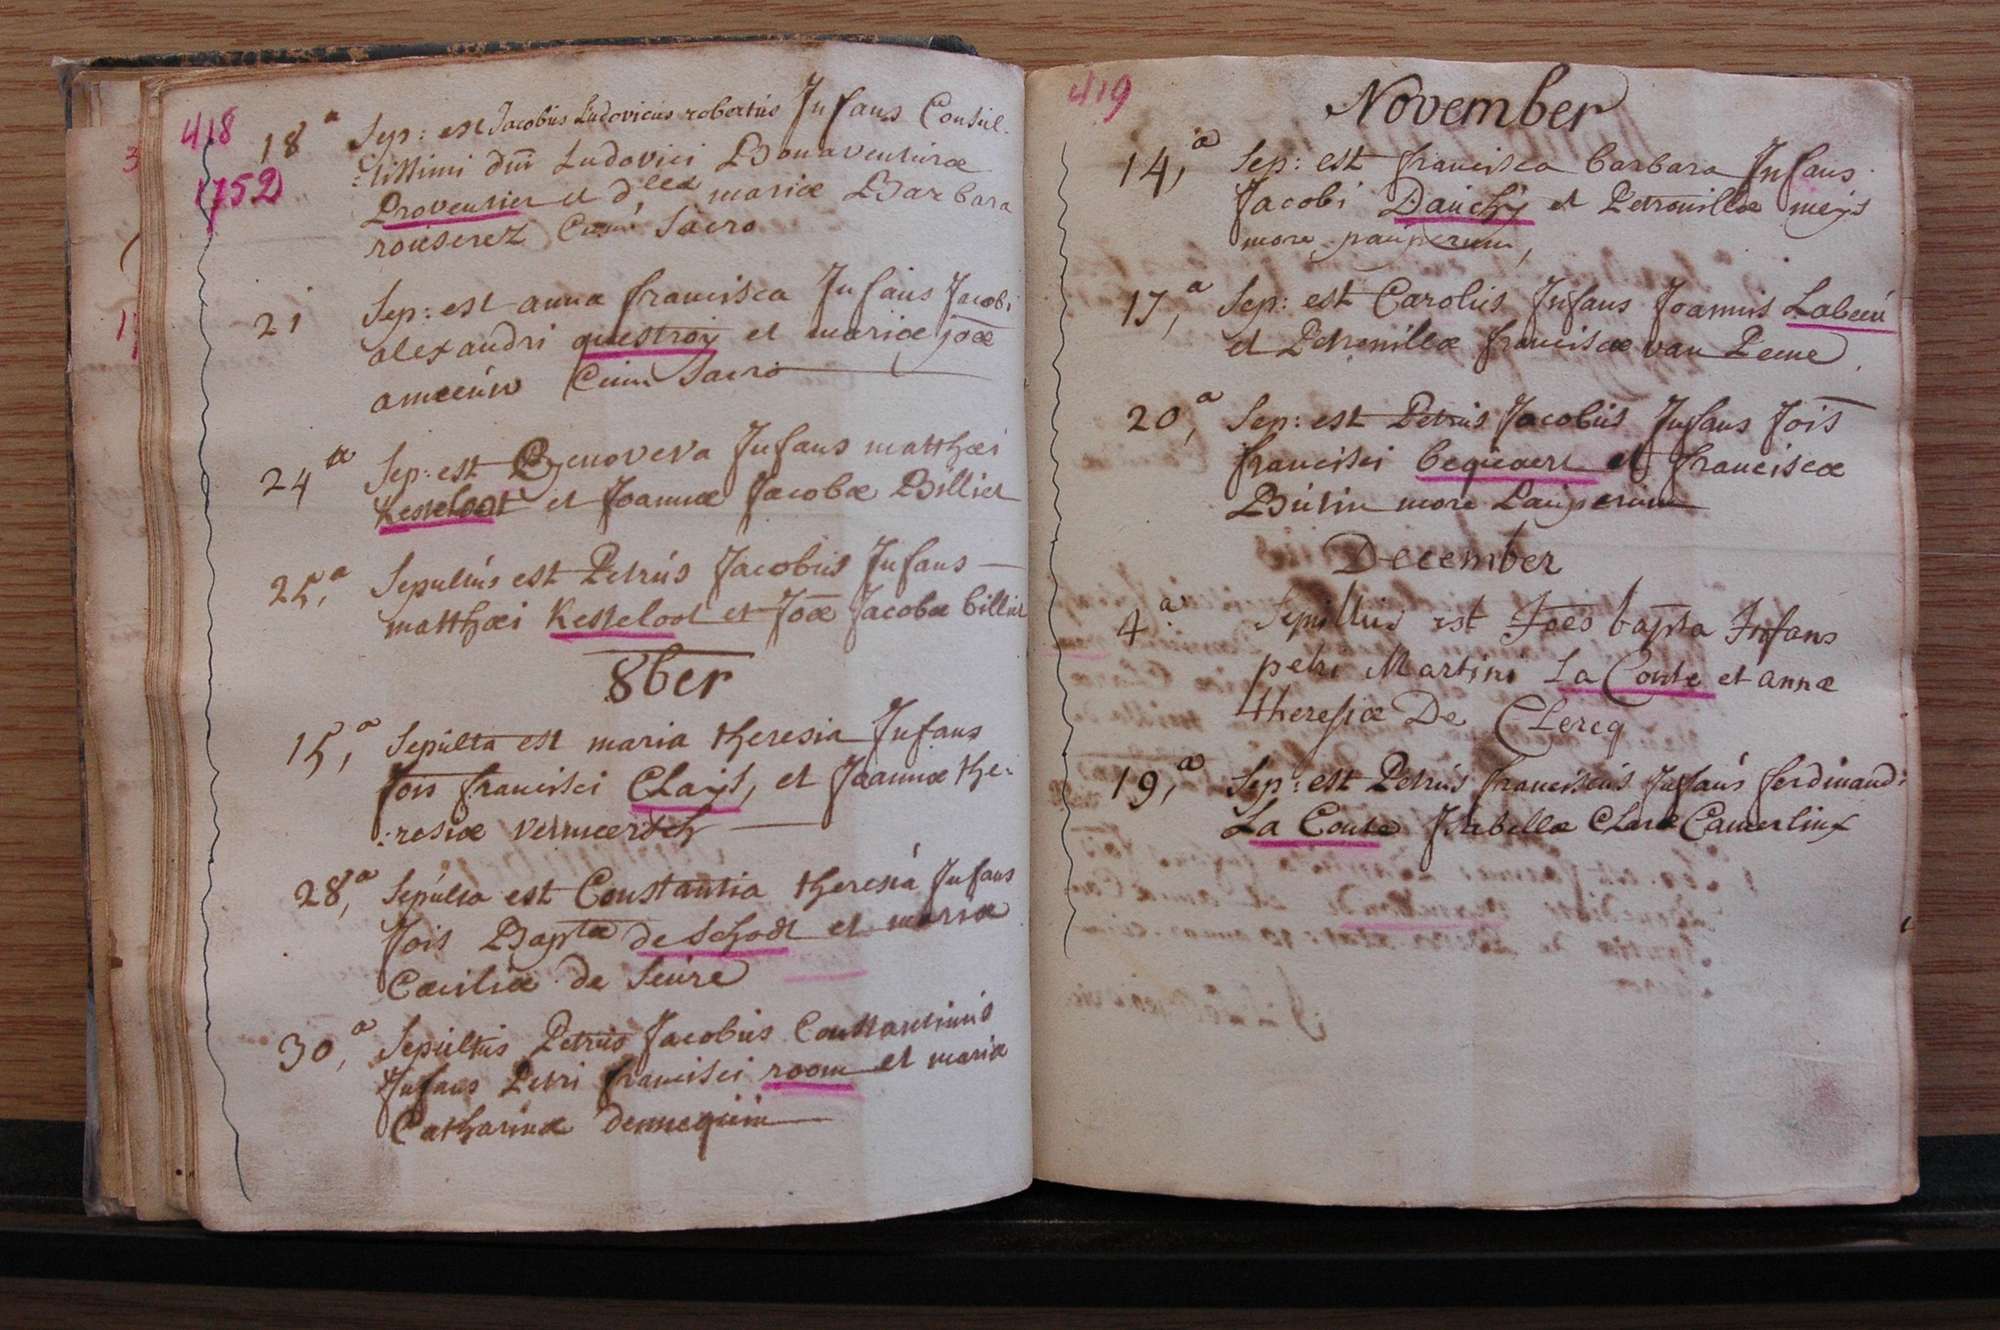 418
1752
18a Sep: est Jacobus Ludovicus robertus Infans Consul-
:tissimi dni Ludovici Bonaventuræ
Proventier et d.llæ mariæ Barbara
rouserez Cum Sacro
21 Sep: est anna francisca Infans Jacobi
alexandri questroy et mariæ joæ
ameeuw Cum Sacro
24a Sep: est Genoveva Infans matthæi
Kesteloot et Joannæ Jacobæ Billiet
25,a Sepultus est Petrus Jacobus Infans
matthæi Kesteloot et Joæ Jacobæ billiet
8ber
15,a Sepulta est maria theresia Infans
Jois francisci CLays, et Joannæ the:
:resiæ vermeersch
28,a Sepulta est Constantia theresia Infans
Jois Baptæ de Schodt et mariæ
Cæciliæ de Seure
30,a Sepultus Petrus Jacobus Constantinus
Infans Petri francisci room et maria
Catharinæ dennequin
419
November
14,a Sep: est francisca barbara Infans
Jacobi Dauchy et Petronillæ meys
more pauperum,
17,a Sep: est Carolus Infans Joannis Labeeu
et Petronillæ franciscæ van Peene
20,a Sep: est Petrus Jacobus Infans Jois
francisci bequaert et franciscæ
Butin more Pauperum
December
4a Sepultus est Joes bapta Infans
petri Martini La Conte et annæ
theresiæ De CLercq
19,a Sep: est Petrus franciscus Infans ferdinandi
La Conte Isabellæ CLaræ Camerlinx